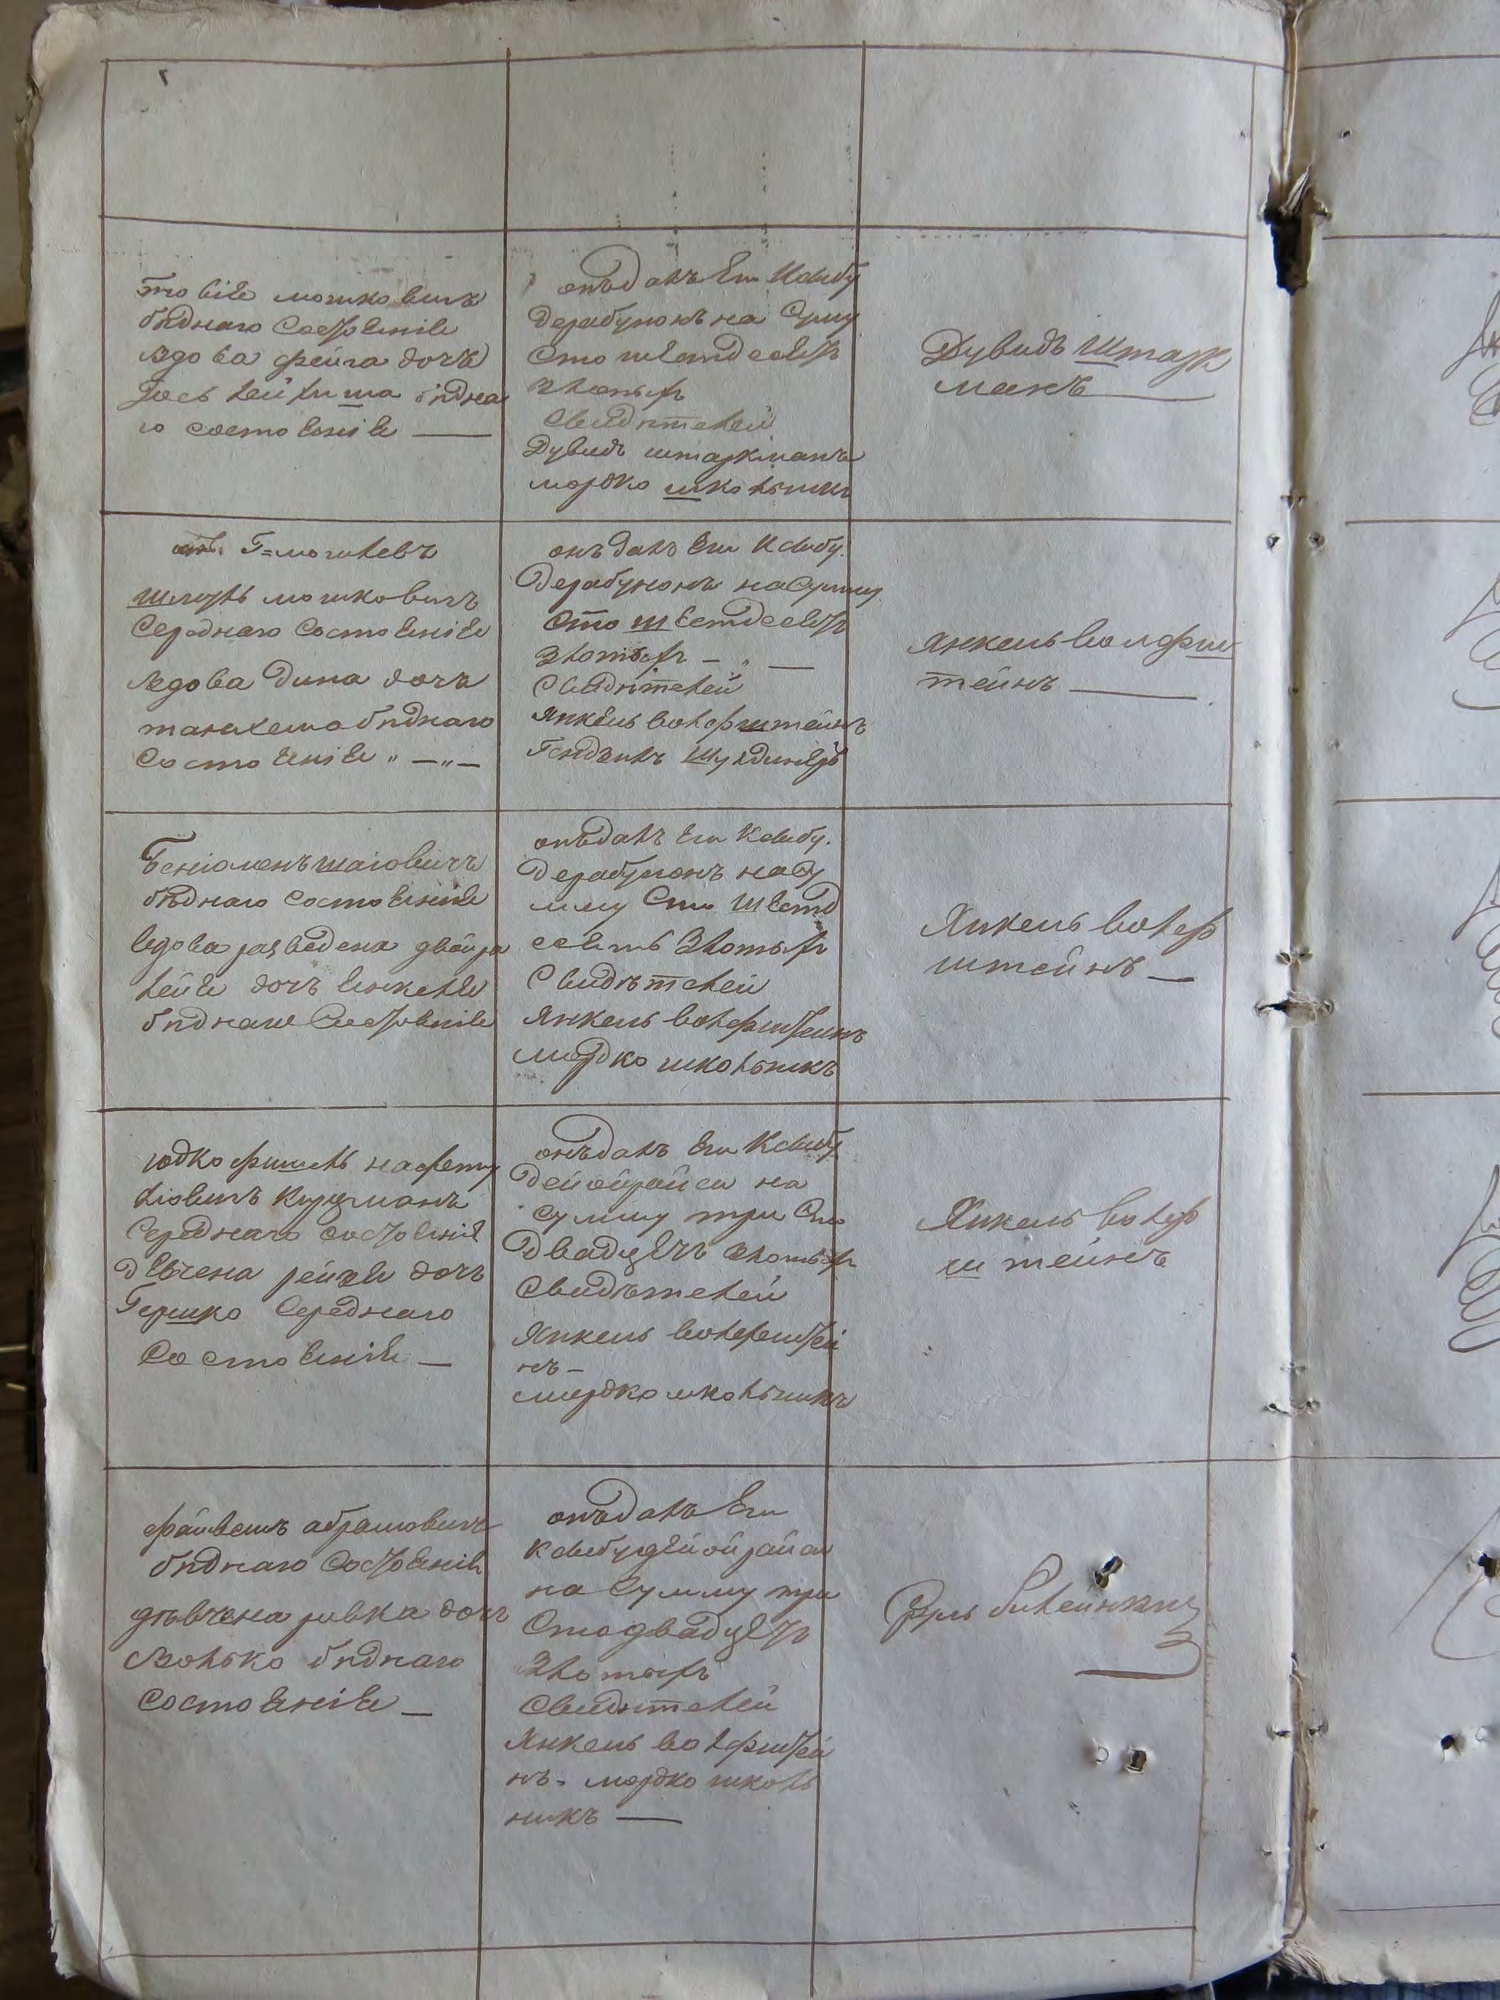 товіе мошковичъ
бѣднаго состоеніе
вдова фейга дочъ
бѣдна
го состоеніе
онъ далъ Еи Ксыбу
дерабунонъ на Суму
Сто шестдесетъ
Злотыхъ
Свидѣтелей
Дувидъ штаркманъ
мордко школьникъ
Дувидъ Штарк
манъ
Г=мошкевъ
шмуль мошковичъ
Середнаго Состоеніе
вдова Дина дочъ
танхема бѣднаго
Состоеніе
онъ далъ Еи Ксыбу
Дерабунонъ на Сумму
Сто шестдесетъ
Злотыхъ
Свидѣтелей
Янкель волфштейнъ
Янкель волфш
тейнъ
Беніоменъ
бѣднаго состоеніе
вдова разведена двойра
лейе дочъ
бѣднаго Состоеніе
онъ далъ Еи Ксыбу
Дерабунонъ на Су
мму Сто шестд
есетъ Злотыхъ
Свидѣтелей
Янкель волфштейнъ
мордко школьникъ
Янкель волф
штейнъ
юдко фишель нафту
ліовичъ
Середнаго состоеніе
девчена рейзе дочъ
Гершко Середнаго
Состоеніе
онъ далъ Еи Ксыбу
дейойрайса на
сумму три Сто
двадцеть Злотыхъ
Свидѣтелей
Янкель волфштей
нъ
мордко школьникъ
Янкель волф
штейнъ
файвешъ абрамовичъ
бѣднаго Состоеніе
дѣвчена ривка дочъ
волько бѣднаго
состоеніе
онъ далъ Еи
Ксыбу дейойрайса
на Сумму три
Сто двадцеть
Злотыхъ
Свидѣтелей
Янкель волфштей
нъ. мордко школь
никъ